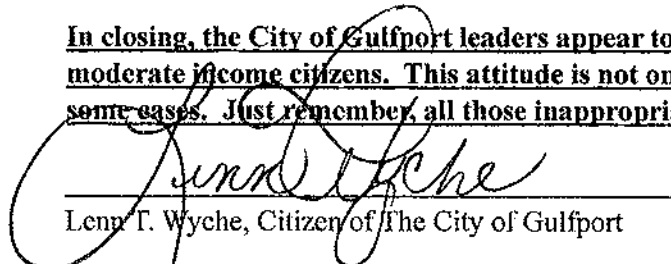 In closing, the City of Gulfport leaders appear to
moderate income citizens. This attitude is not on
some cases. Just remember, all those inappropri
Lenn Wyche
Lenn T. Wyche, Citizen of The City of Gulfport